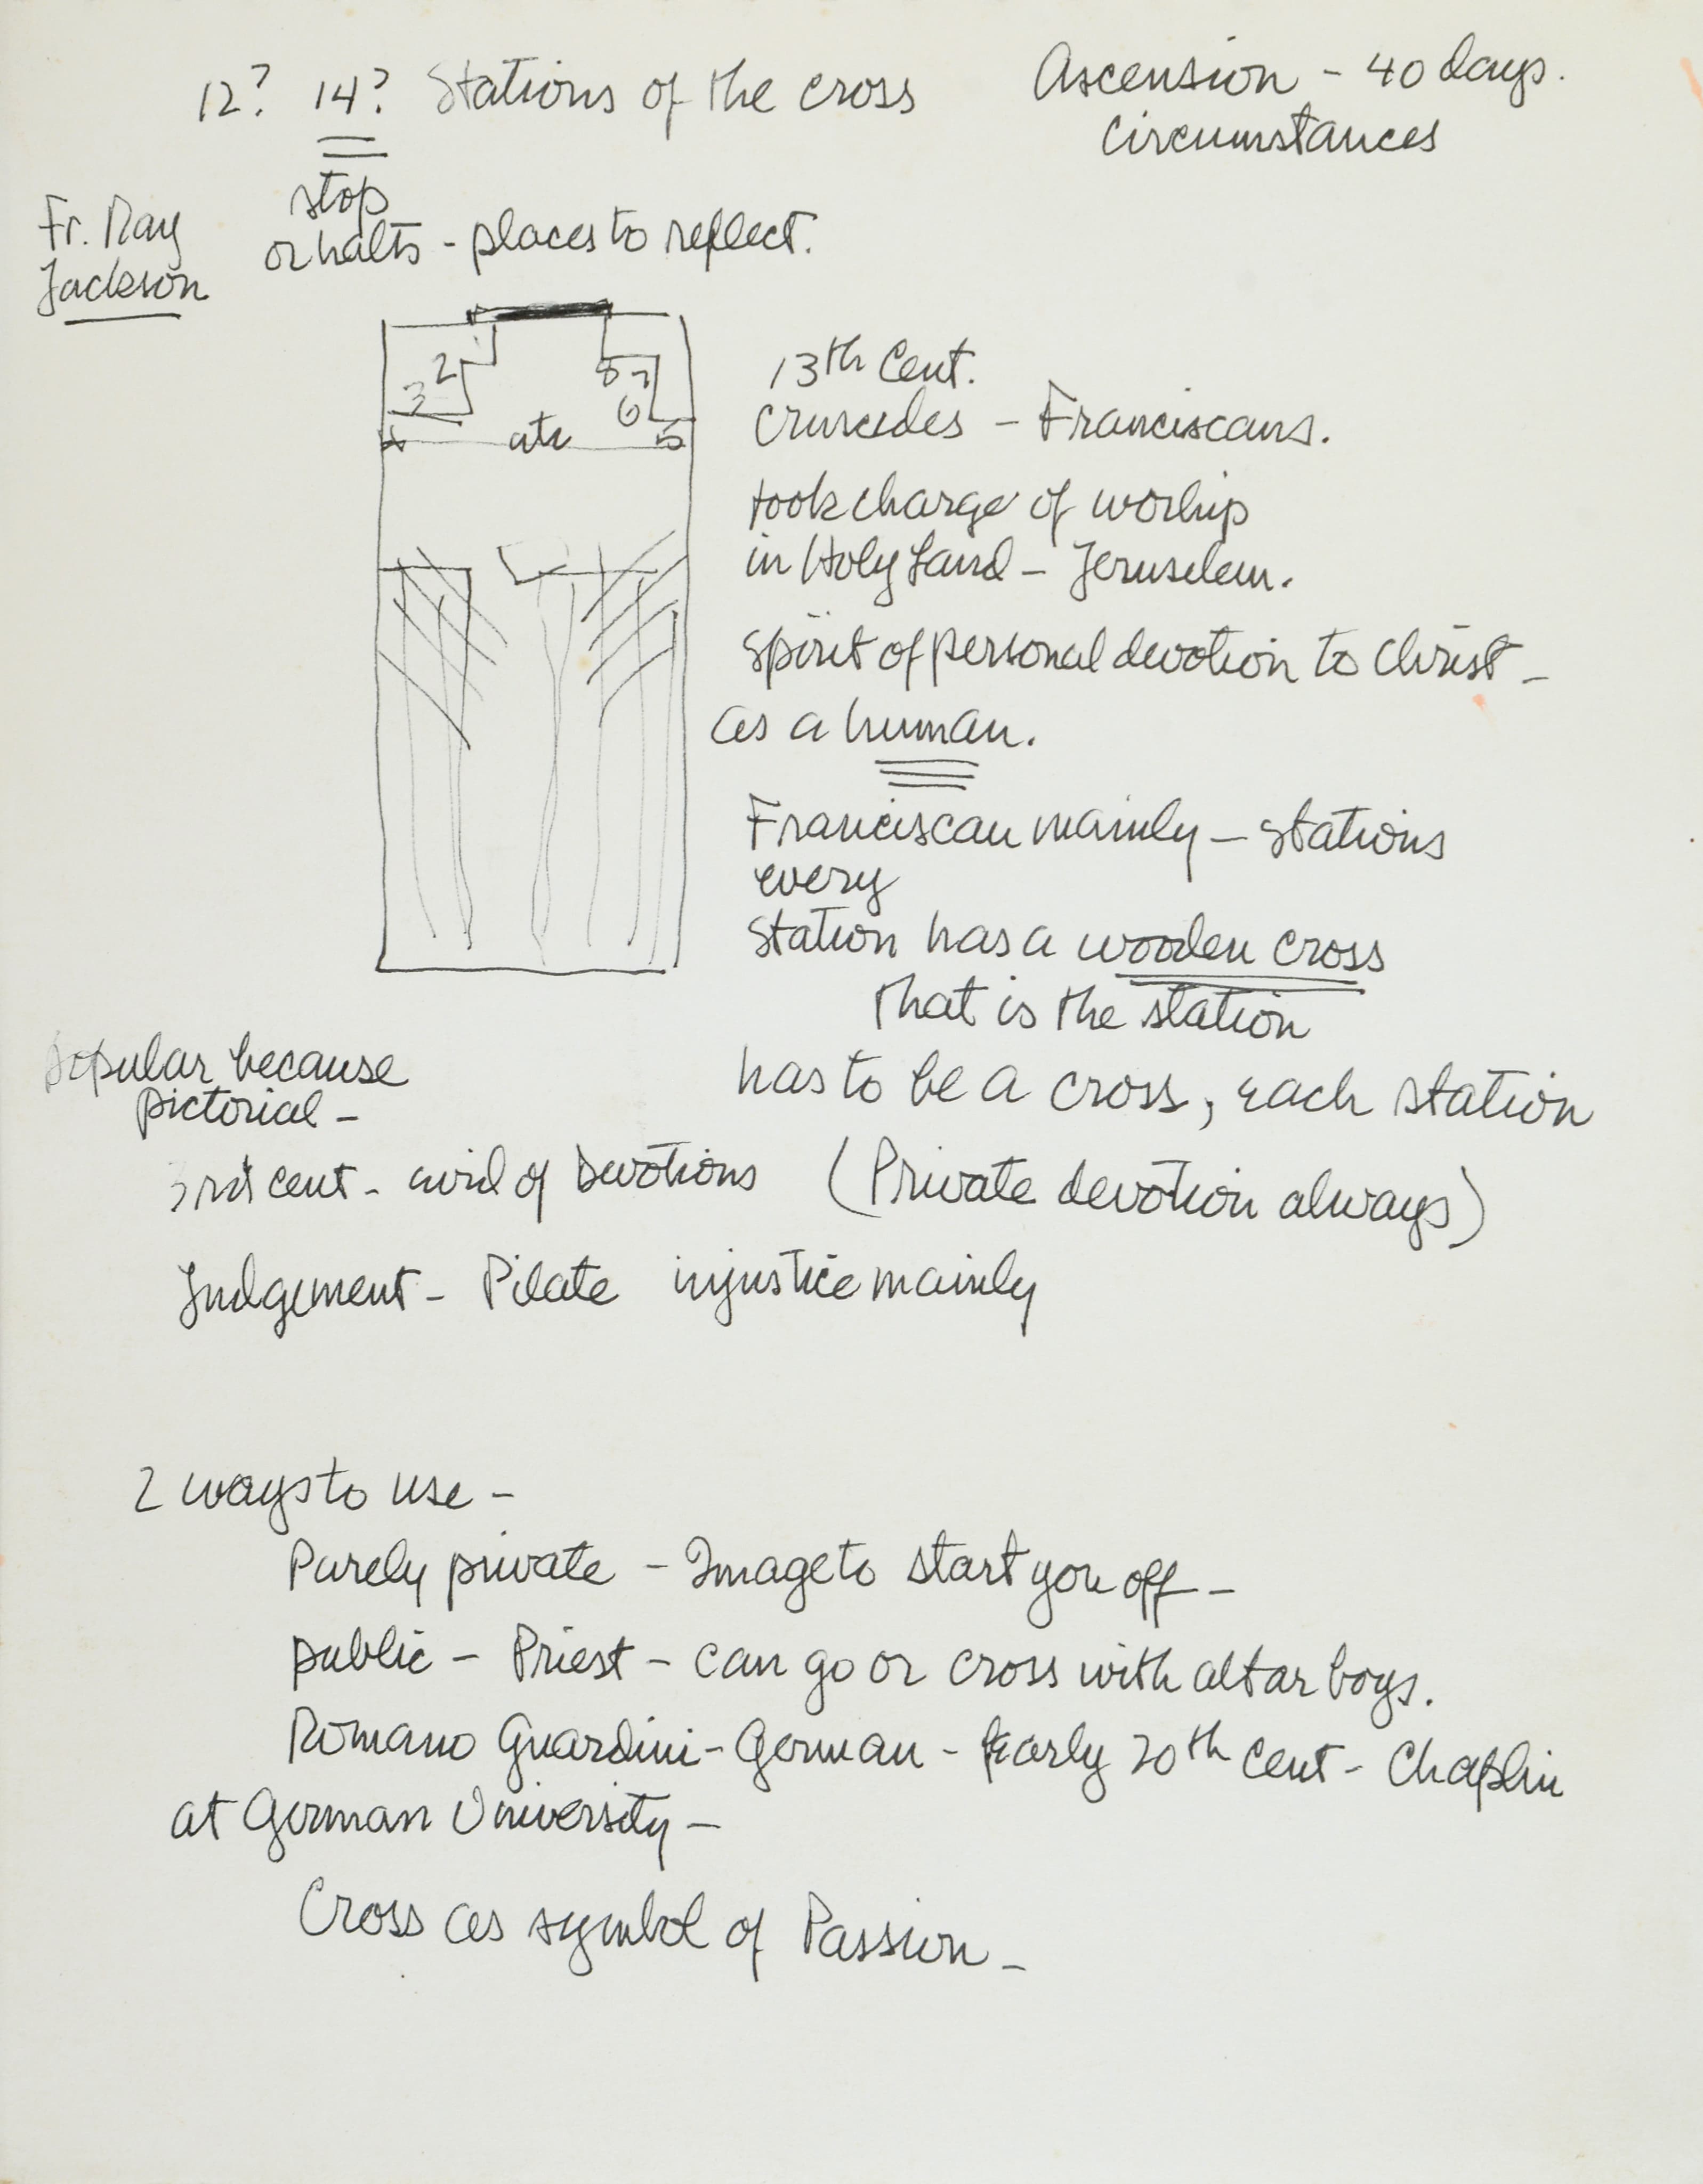 12? 14? Stations of the cross
Ascension - 40 days.
Circumstances
stop
or halts - places to reflect.
Fr. Ray
Jackson
2
3
8 7
6
5
13th Cent.
Crusades - Franciscans.
took charge of worhip
in Holy Land - Jerusalem.
spirit of personal devotion to Christ -
as a human.
Franciscan mainly - stations
every
station has a wooden cross
that is the station
has to be a cross, each station
Popular because
pictorial -
3rd cent - of Devotions
(Private devotion always)
Judgement - Pilate injustice mainly
2 ways to use -
Purely private - Image to start you off -
public - Priest - can go or cross with altar boys.
Romano Guardini - German - Early 20th Cent - Chaplin
at German University -
Cross as symbol of Passion -